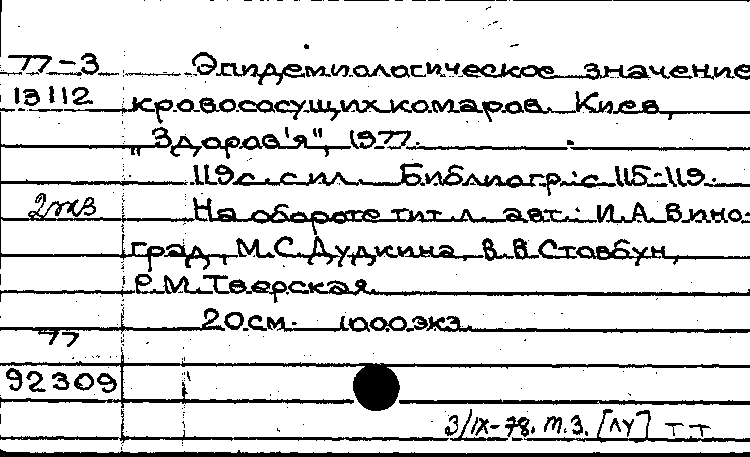 77-3 Эпидемиологическое значение
13112 кровососущих комаров. Киев,
„Здоров'я", 1977.
119 с. с ил. Библиогр.: с 115-119.
2экз На обороте тит. л. авт.: И.А. Вино-
град, М.С. Дудкина, В.В Стовбун,
Р.М. Тверская.
20 см. 1000 экз.
77
92309
3/IX-78. т.3. [лу] Т.Т